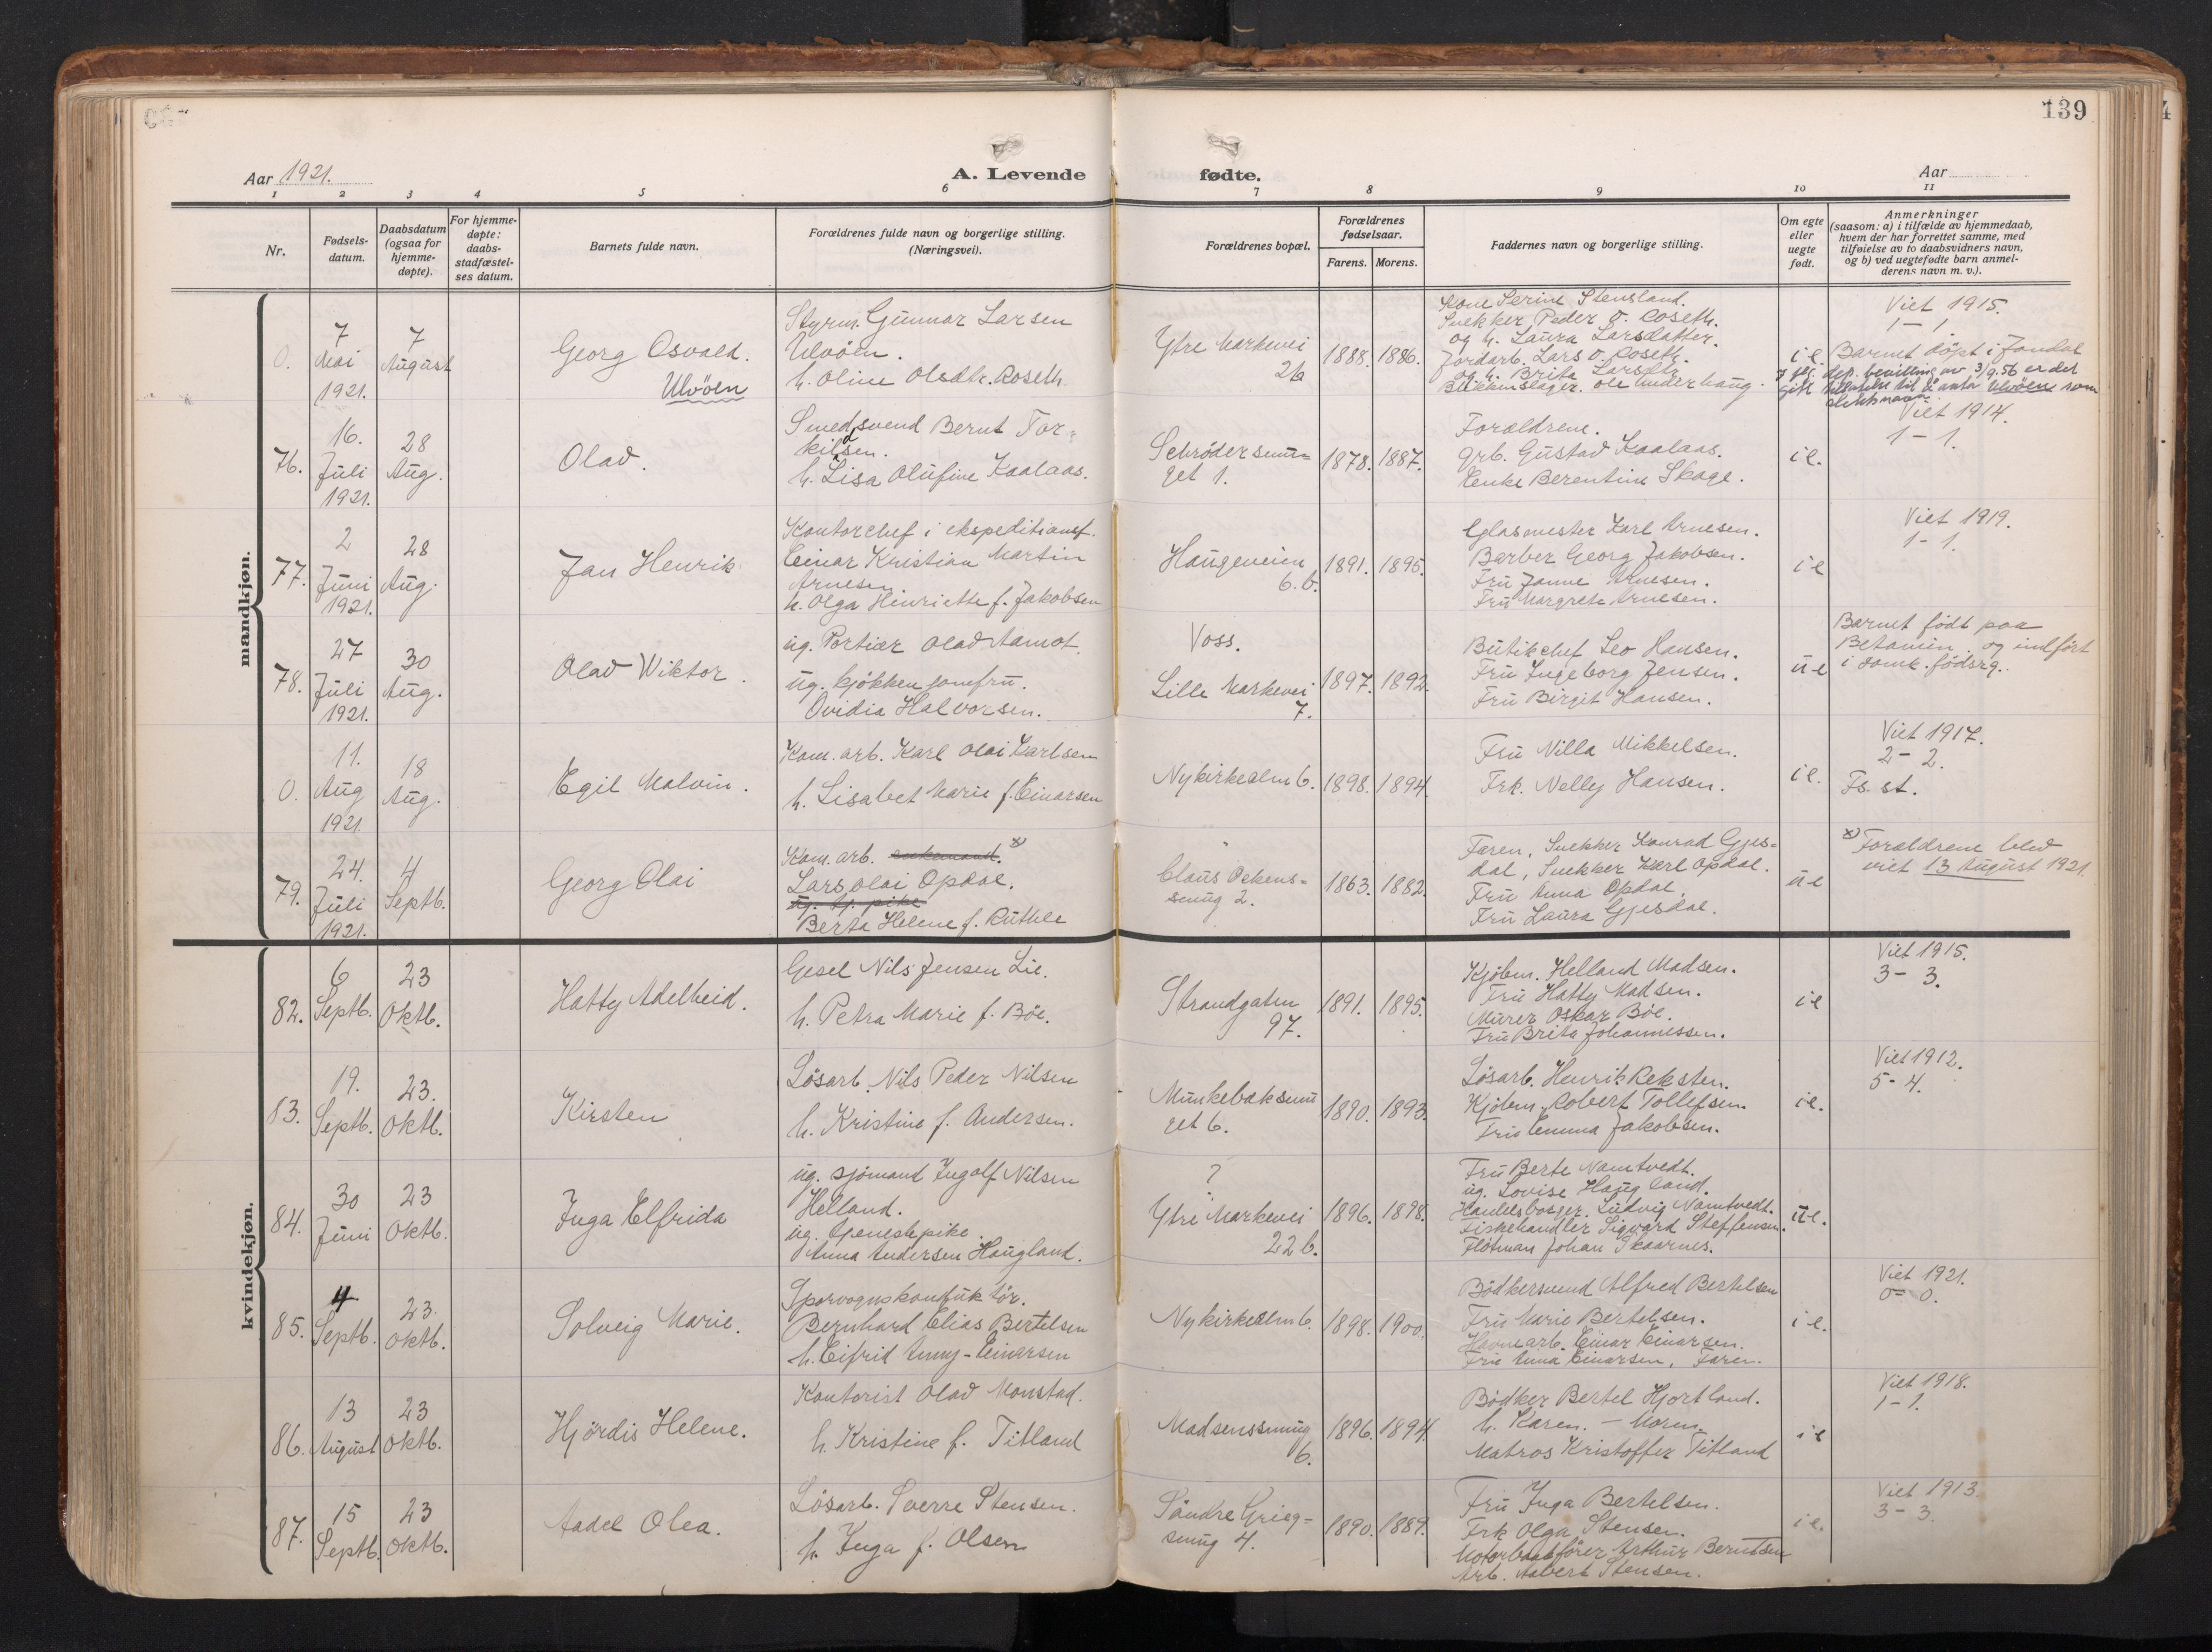 139
Aar 1921.
A. Levende fødte.
Aar
1 2 3 4 5 6 7 8 9 10 11
Nr.
Fødsels-
datum.
Daabsdatum
(ogsaa for
hjemme-
døpte).
For hjemme-
døpte:
daabs-
stadfæstel-
ses datum.
Barnets fulde navn.
Forældrenes fulde navn og borgerlige stilling.
(Næringsvei).
Forældrenes bopæl.
Forældrenes
fødselsaar.
Farens. Morens.
Faddernes navn og borgerlige stilling.
Om egte
eller
uegte
født.
Anmerkninger
(saasom: a) i tilfælde av hjemmedaab,
hvem der har forrettet samme, med
tilføielse av to daabsvidners navn,
og b) ved uegtefødte barn anmel-
derens navn m. v.).
mandkjøn.
0.
7
Mai
1921.
7
August
Georg Osvald.
Ulvöen
Styrm. Gunnar Larsen
Ulvöen.
h. Oline Olsdtr. Roseth.
Ytre Markevei
26
1888. 1886.
Kone Serine Stensland.
Snekker Peder O. Roseth.
og h. Laura Larsdatter.
Jordarb. Lars O. Roseth.
og h. Brita Larsdtr.
Blikkenslager Ole Underhaug.
i e
Viet 1915.
1 - 1
Barnet döpt i Jondal
J flg. dep. bevilling av 3/9.56 er det
gitt tillatelse til å anta Ulvöen som
slektsnavn.
76.
16.
Juli
1921.
28
Aug.
Olav.
Smedsvend Bernt Tor-
kilsen.
h. Lisa Olufine Kaalaas.
Schrödersmu-
get 1.
1878. 1887.
Forældrene.
grb. Gustav Kaalaas.
Enke Berentine Skage.
i e.
Viet 1914.
1 - 1.
77.
2
Juni
1921.
28
Aug.
Jan Henrik.
Kontorchef i ekspeditionsf.
Einar Kristian Martin
Arnesen
h. Olga Henriette f. Jakobsen
Haugeveien
6. b.
1891. 1895.
Glasmester Karl Arnesen.
Barber Georg Jakobsen.
Fru Janne Arnesen.
Fru Margrete Arnesen.
i e
Viet 1919.
1 - 1.
78.
27
Juli
1921.
30
Aug.
Olav Wiktor.
ug. Portier Olav Aamot.
ug. kjökkenjomfru.
Ovidia Halvorsen.
Voss.
Lille Markevei
7.
1897. 1892.
Butikchef Leo Hansen.
Fru Ingeborg Jensen.
Fru Birgit Hansen.
u e
Barnet födt paa
Betanien og indfört
i domk. födsrg.
0.
11.
Aug
1921.
18
Aug.
Egil Malvin.
Kom. arb. Karl Olai Karlsen
h. Lisabet Marie f. Einarsen
Nykirkealm 6.
1898. 1894.
Fru Nilla Mikkelsen.
Frk. Nelly Hansen.
i e.
Viet 1917.
2 - 2.
Fs. st.
79.
24.
Juli
1921.
4
Septb.
Georg Olai
Kom. arb. enkemand. x)
Lars Olai Opdal.
ug. tj. pike
Berta Helene f. Ruthle
Claus Ockens-
smug 2.
1863. 1882.
Faren, Snekker Konrad Gjes-
dal, Snekker Karl Opdal.
Fru Anna Opdal.
Fru Laura Gjesdal.
u e
x) Forældrene blev
viet 13 August 1921.
kvindekjøn.
82.
6
Septb.
23
Oktb.
Hatty Adelheid.
Gesel Nils Jensen Lie.
h. Petra Marie f. Böe.
Strandgaten
97.
1891. 1895.
Kjöbm. Helland Madsen.
Fru Hatty Madsen.
Murer Oskar Böe.
Fru Brita Johannessen.
i e
Viet 1915.
3 - 3.
83.
19.
Septb.
23.
Oktb.
Kirsten
Lösarb. Nils Peder Nilsen
h. Kristine f. Andersen.
Munkebæksmu
get 6.
1890. 1893.
Lösarb. Henrik Reksten.
Kjöbm. Robert Tollefsen.
Fru Emma Jakobsen.
i e.
Viet 1912.
5 - 4.
84.
30
Juni
23
Oktb.
Inga Elfrida
ug. Sjömand Ingolf Nilsen
Helland.
ug. tjenestepike.
Anna Andersen Haugland.
?
Ytre Markevei
22 b.
1896. 1898.
Fru Berte Namtvedt.
ug. Lovise Haugland.
Handelsborger. Ludvig Namtvedt.
Fiskehandler Sigvard Steffensen.
Flötman Johan Skaarnes.
u e.
85.
4.
Septb.
23.
Oktb.
Solveig Marie.
Sporvognskonduktör.
Bernhard Elias Bertelsen
h. Eifrid Anny - Einarsen
Nykirkealm 6.
1898. 1900.
Bödkersvend Alfred Bertelsen
Fru Marie Bertelsen.
Havnearb. Einar Einarsen.
Fru Anna Einarsen, Faren.
i e.
Viet 1921.
0 - 0.
86.
13
August
23
Oktb.
Hjördis Helene.
Kontorist Olav Monstad.
h. Kristine f. Titland
Madsenssmug
6.
1896. 1894.
Bödker Bertel Hjortland.
h. Karen. - Moren.
Matros Kristoffer Titland
i e
Viet 1918.
1 - 1.
87.
15
Septb.
23
Oktb.
Aadel Olea.
Lösarb. Sverre Stensen.
h. Inga f. Olsen
Söndre Grieg-
smug 4.
1890. 1889.
Fru Inga Bertelsen.
Frk Olga Stensen.
Motorbaatförer Arthur Berntsen
Arb. Aalvert Stensen.
i e.
Viet 1913.
3 - 3.